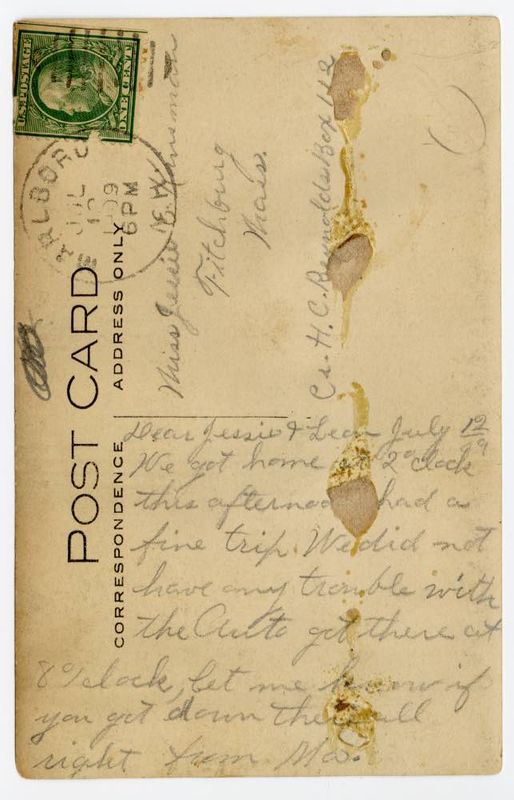 U.S. POSTAGE
ONE CENT
MARLBORO
JUL
12
1909
6 PM
N.H.
POST CARD
ADDRESS ONLY
CORRESPONDENCE
Miss Jessie E.
Fitchburg
Mass.
H.C. Reynolds Box 112
Dear Jessie & Leon July 12
We got home at 2 o'clock
this afternoon had a
fine trip. We did not
have any trouble with
the Auto got there at
8 o/clock, let me know if
you got down there all
right from Ma.